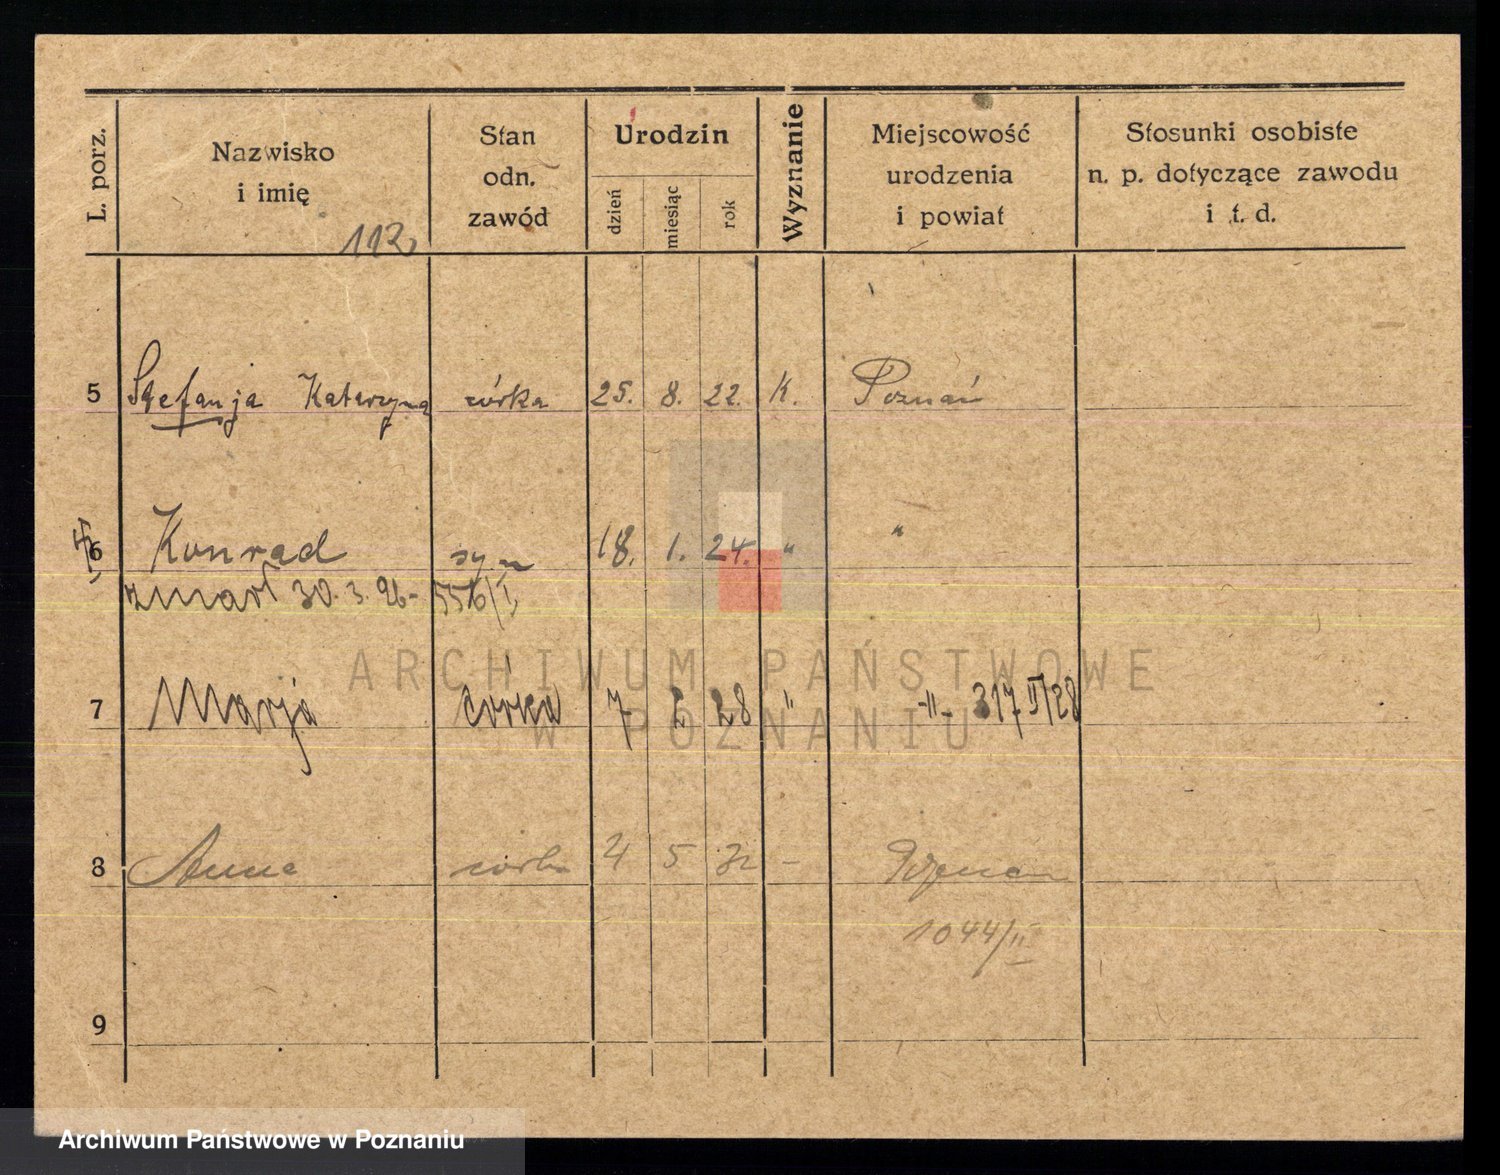 L. porz.
Nazwisko
i imię
Stan
odn.
zawód
Urodzin
dzień
miesiąc
rok
Wyznanie
Miejscowość
urodzenia
i powiat
Stosunki osobiste
n. p. dotyczące zawodu
i t. d.
112,
5 Stefanja Katarzyna córka 25. 8. 22. K. Poznań
6 Konrad syn 18. 1. 24. " "
zmarł 30. 3. 26- 556/I,
7 Marja córka 7 2 28 " -"- 317 II/28
8 Anna córka 4 5 32 -
1044/II
9
ARCHIWUM PAŃSTWOWE
W POZNANIU
Archiwum Państwowe w Poznaniu